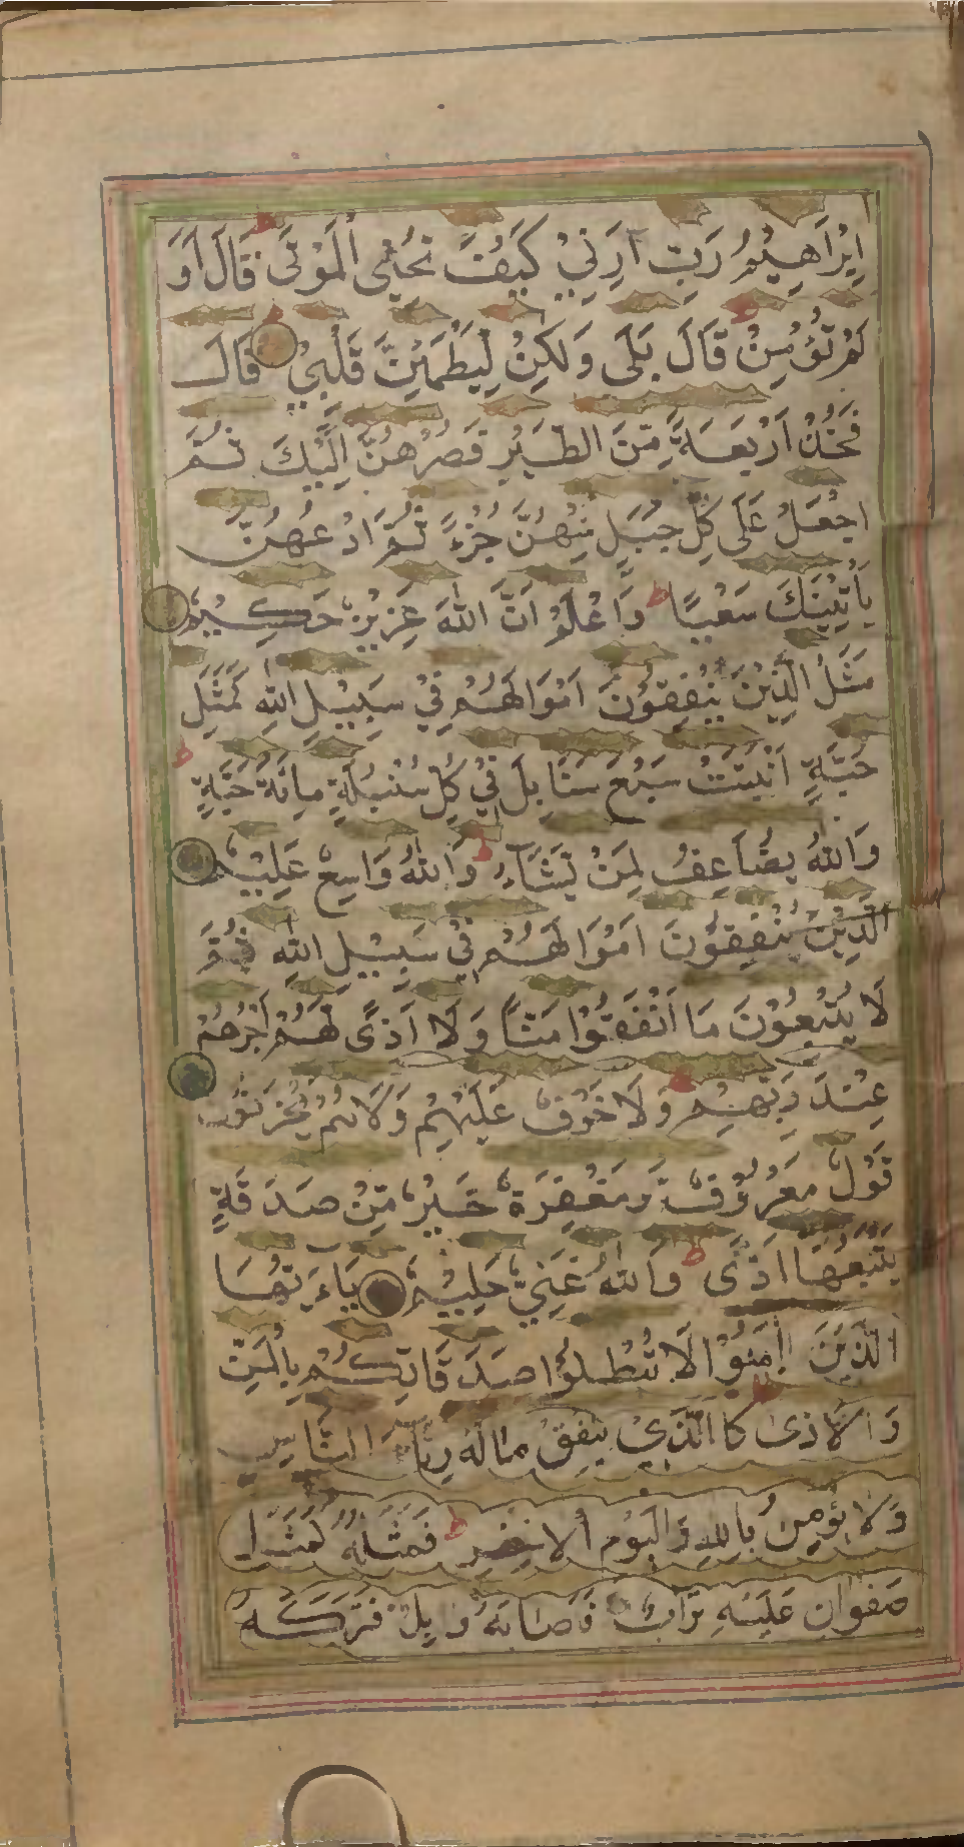 اِبْرَاهِيْمُ رَبِّ اَرِنِيْ كَيْفَ تُحْيِي الْمَوْتَى قَالَ اَوَ
لَمْ تُؤْمِنْ قَالَ بَلَى وَلَكِنْ لِيَطْمَئِنَّ قَلْبِيْ قَالَ
فَخُذْ اَرْبَعَةً مِّنَ الطَّيْرِ فَصُرْهُنَّ اِلَيْكَ ثُمَّ
اجْعَلْ عَلَى كُلِّ جَبَلٍ مِنْهُنَّ جُزْءً ثُمَّ ادْعُهُنَّ
يَأْتِيْنَكَ سَعْيًا وَاعْلَمْ اَنَّ اللّٰهَ عَزِيْزٌ حَكِيْمٌ
مَثَلُ الَّذِيْنَ يُنْفِقُوْنَ اَمْوَالَهُمْ فِيْ سَبِيْلِ اللّٰهِ كَمَثَلِ
حَبَّةٍ اَنْبَتَتْ سَبْعَ سَنَابِلَ فِيْ كُلِّ سُنْبُلَةٍ مِائَةُ حَبَّةٍ
وَاللّٰهُ يُضَاعِفُ لِمَنْ يَّشَآءُ وَاللّٰهُ وَاسِعٌ عَلِيْمٌ
الَّذِيْنَ يُنْفِقُوْنَ اَمْوَالَهُمْ فِيْ سَبِيْلِ اللّٰهِ ثُمَّ
لَا يُتْبِعُوْنَ مَا اَنْفَقُوْا مَنًّا وَلَا اَذًى لَهُمْ اَجْرُهُمْ
عِنْدَ رَبِّهِمْ وَلَا خَوْفٌ عَلَيْهِمْ وَلَا هُمْ يَحْزَنُوْنَ
قَوْلٌ مَعْرُوْفٌ وَّمَغْفِرَةٌ خَيْرٌ مِّنْ صَدَقَةٍ
يَتْبَعُهَا اَذًى وَاللّٰهُ غَنِيٌّ حَلِيْمٌ يَاءَيُّهَا
الَّذِيْنَ اٰمَنُوْا لَا تُبْطِلُوْا صَدَقَاتِكُمْ بِالْمَنِّ
وَالْاَذٰى كَاالَّذِيْ يُنْفِقُ مَالَهُ رِئَآءَ النَّاسِ
وَلَا يُؤْمِنُ بِاللّٰهِ وَالْيَوْمِ الْاٰخِرِ فَمَثَلُهُ كَمَثَلِ
صَفْوَانٍ عَلَيْهِ تُرَابٌ فَاَصَابَهُ وَابِلٌ فَتَرَكَهُ